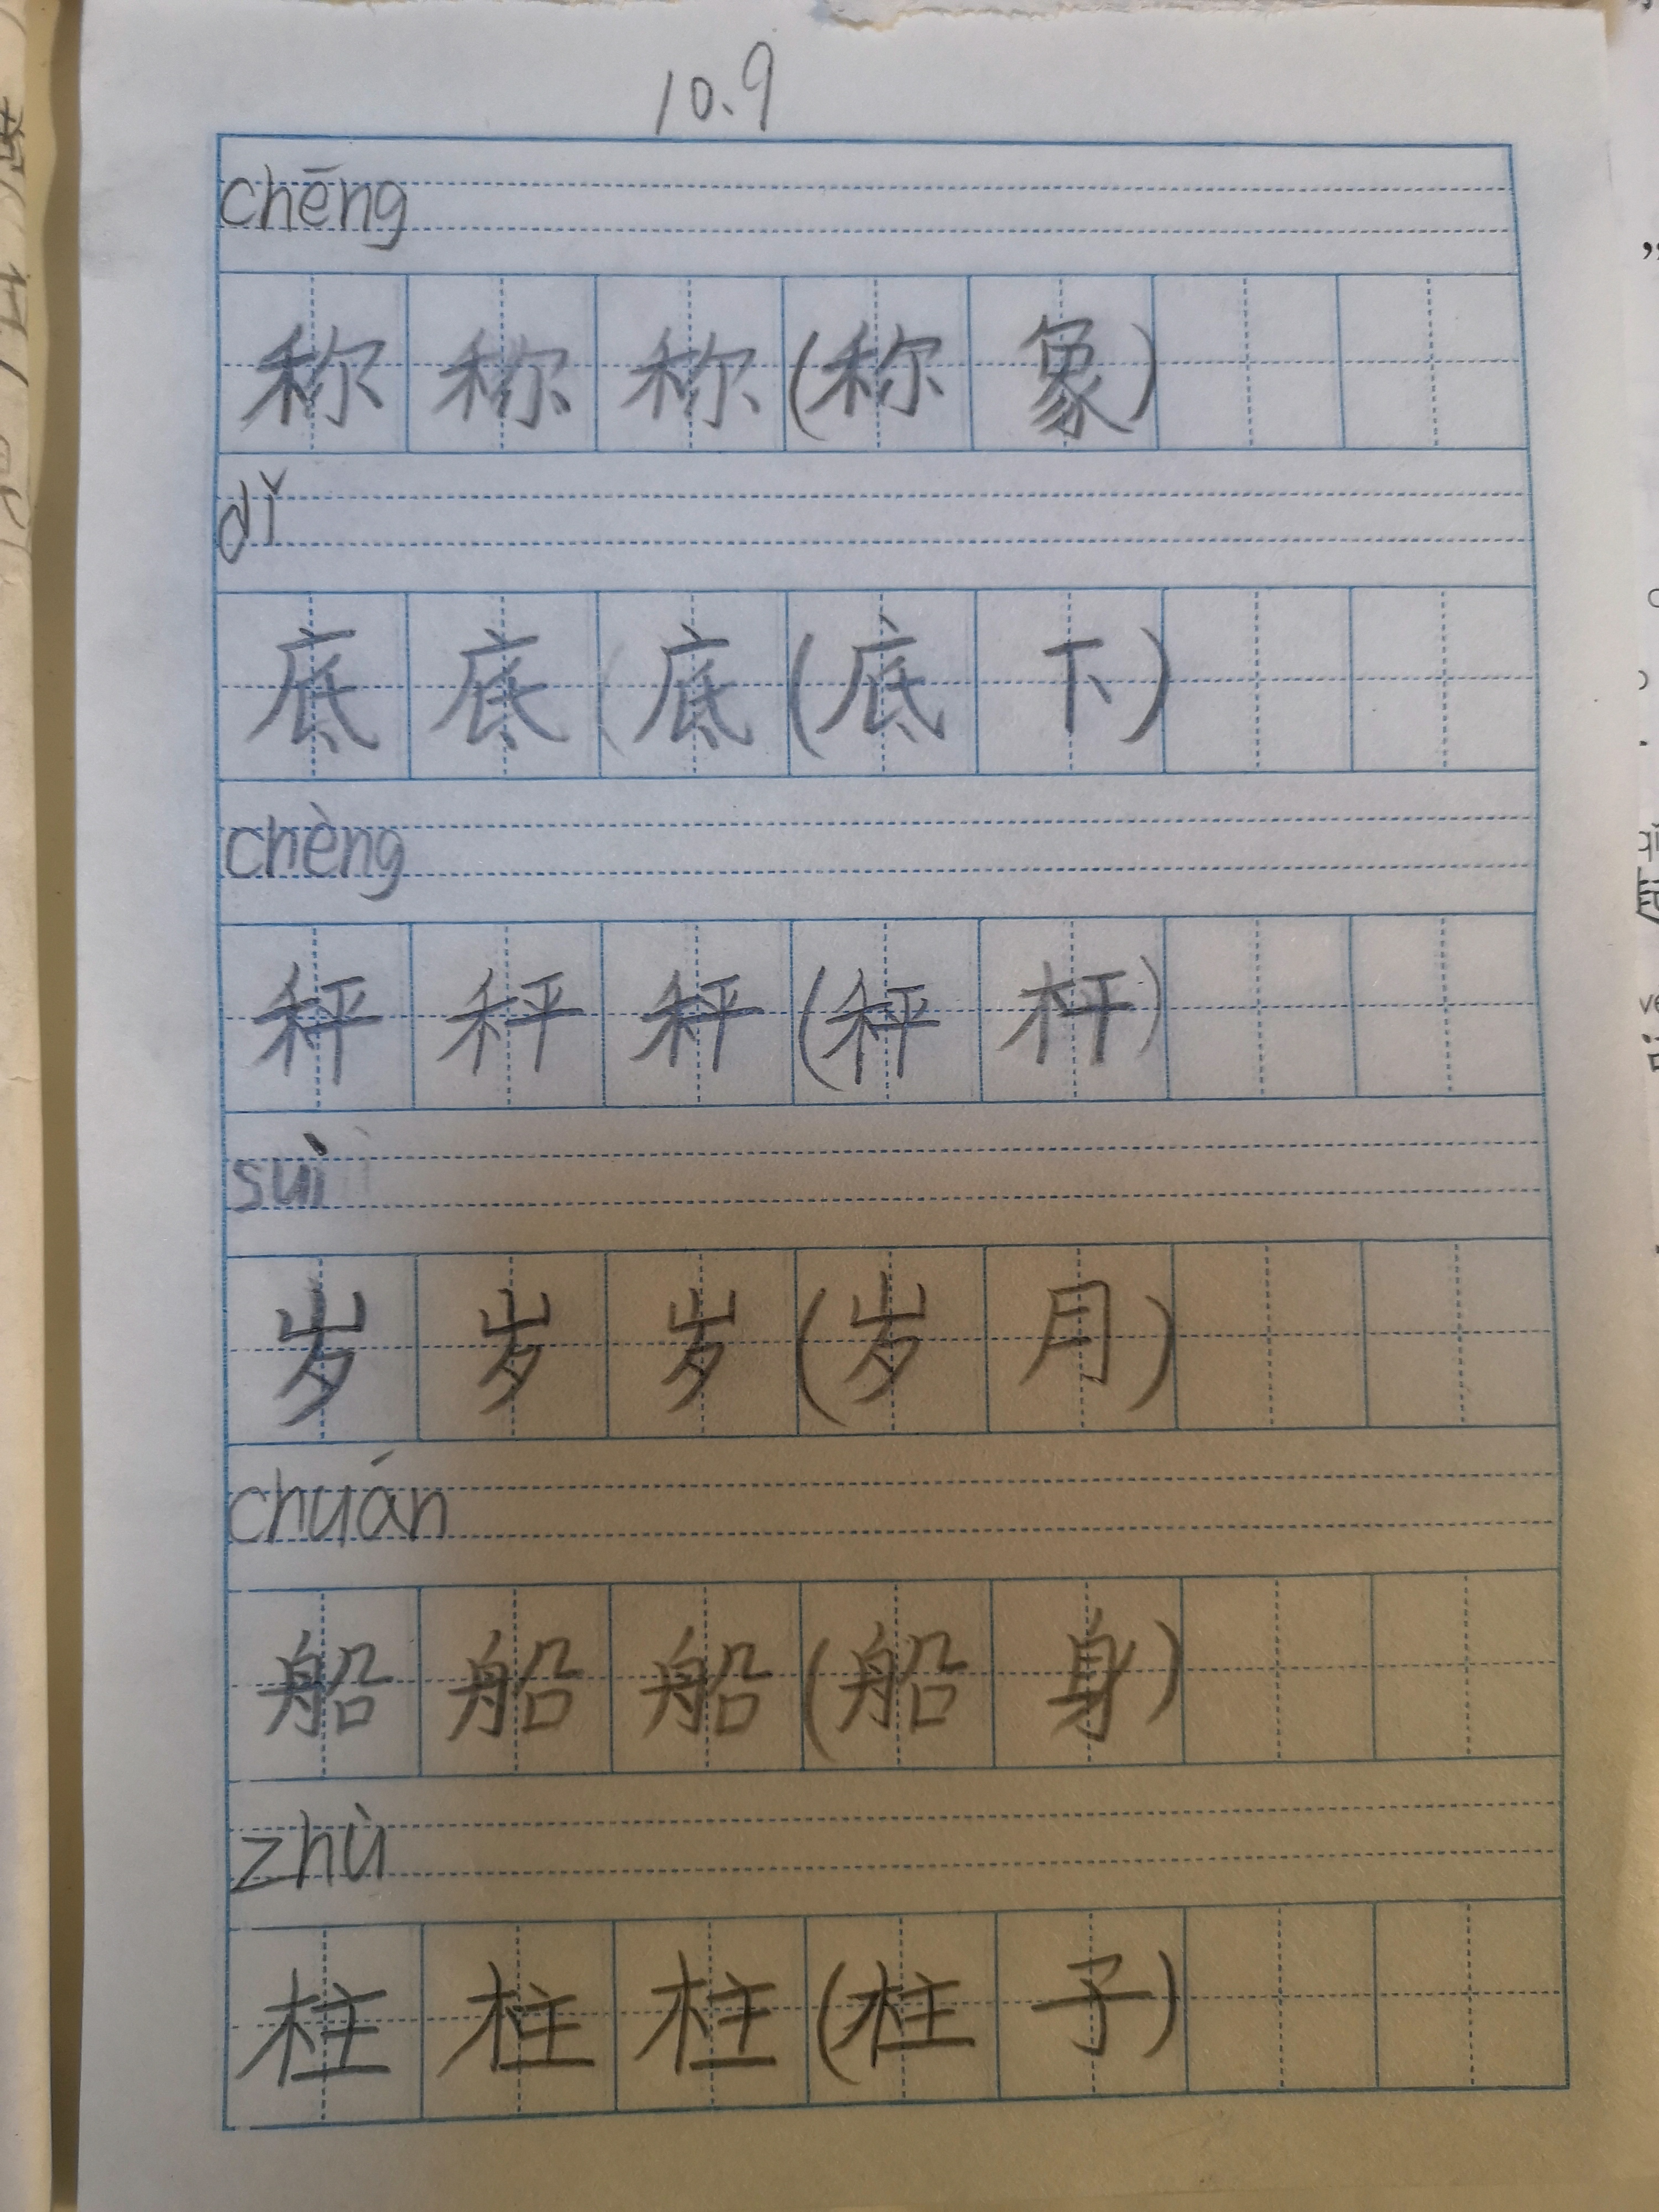 10.9
chēng
称 称 称 (称 象)
dǐ
底 底 底 (底 下)
chèng
秤 秤 秤 (秤 杆)
suì
岁 岁 岁 (岁 月)
chuán
船 船 船 (船 身)
zhù
柱 柱 柱 (柱 子)